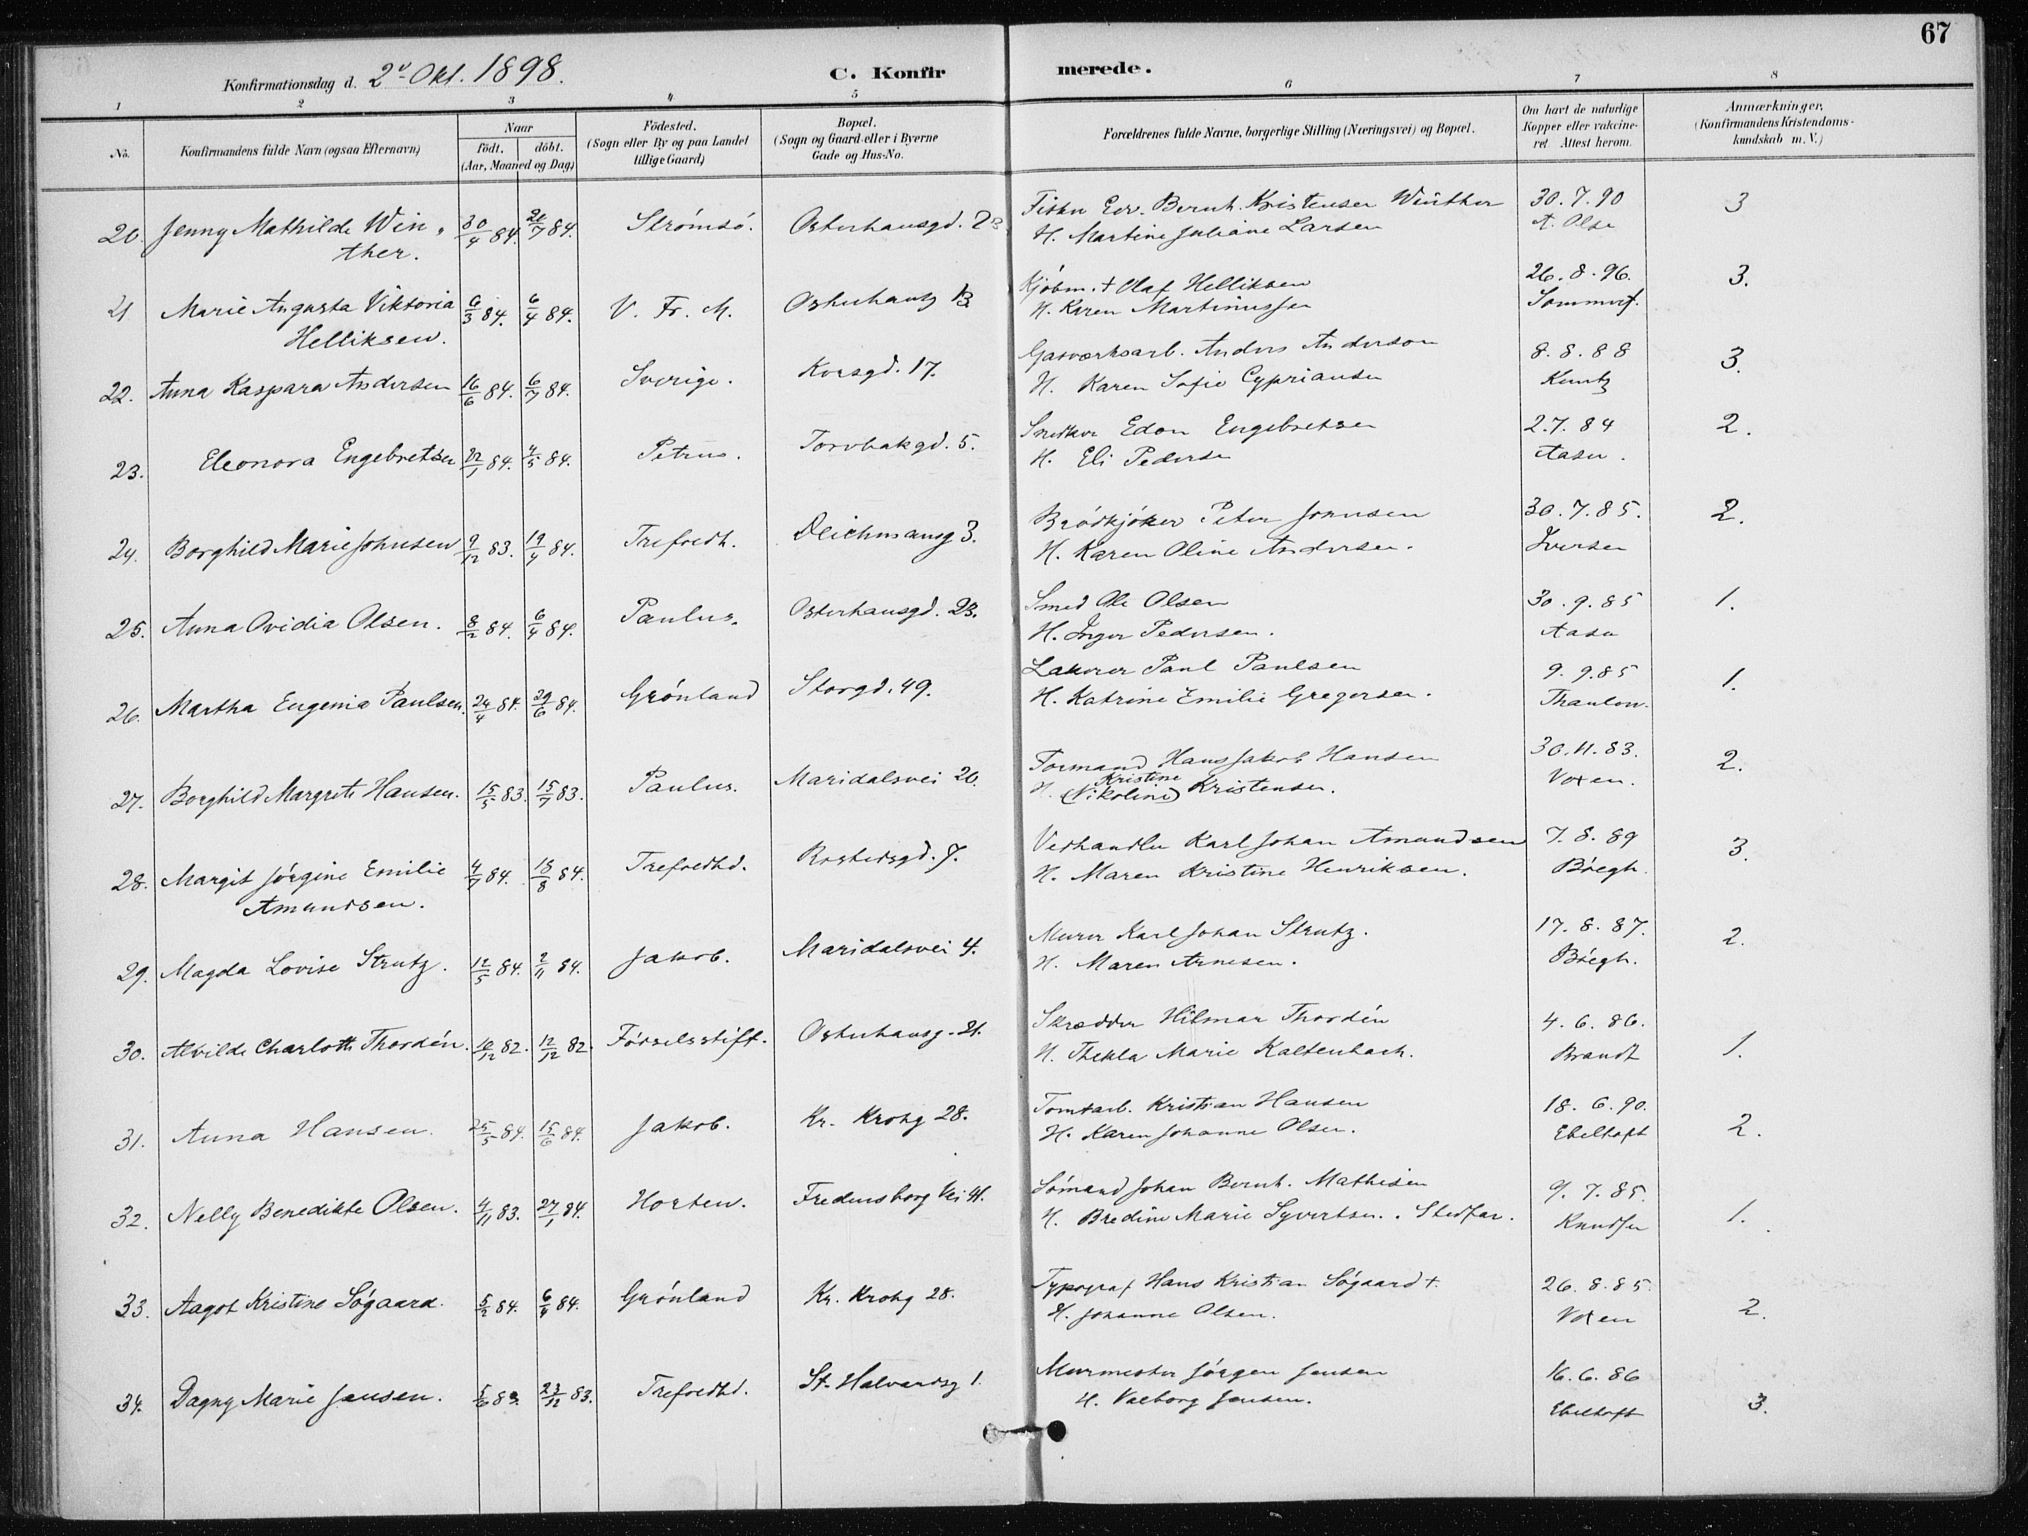 67
Konfirmationsdag d. 2d Okt. 1898. C. Konfirmerede.
1 2 3 4 5 6 7 8
No. Konfirmandens fulde Navn (ogsaa Efternavn) Naar født. døbt. (Aar, Maaned og Dag) Fødested. (Sogn eller By og paa Landet tillige Gaard) Bopæl. (Sogn og Gaard eller i Byerne Gade og Hus-No. Forældrenes fulde Navne, borgerlige Stilling (Næringsvei) og Bopæl. Om havt de naturlige Kopper eller vakcineret. Attest herom. Anmærkninger. (Konfirmandens Kristendomskundskab m. V.)
20. Jenny Mathilde Win- 30/4 84. 20/7 84. Strømsø. Osterhausgd. Bernh. Kristensen Winther 30.7.90 3
ther. H. Martine Juliane Larsen A. Olse
21 Marie Augusta Viktoria 6/3 84. 6/4 84. V. Fr. M. Osterhausg 13 Kjøbm. + Olaf Helliksen 26.8.96. 3.
Helliksen. H. Karen Martinussen
22. Anna Kaspara Andersen 16/6 84. 6/7 84. Sverige. Korsgd. 17. Gasværksarb. Anders Anderson 8.8.88 3.
H. Karen Sofie Cypriansen Kuntz
23. Eleonora Engebretsen 22/1 84. 4/5 84. Petrus. Torvbakgd. 5. Snedker Edon Engebretsen 2.7.84 2.
H. Eli Pedersen Aasen.
24. Borghild Marie Johnsen 9/12 83. 19/4 84. Trefoedh. Deichmansg 3. Brødkjører Peter Johnsen 30.7.85. 2.
H. Karen Oline Andersen. Iversen
25. Anna Ovidia Olsen. 8/2 84. 6/4 84. Paulus. Osterhausgd. 23. Smed Ole Olsen 30.9.85 1.
H. Inger Pedersen. Aasen
26. Martha Eugenia Paulsen. 24/4 84. 29/6 84. Grønland Storgd. 49. Lakerer Paul Paulsen 9.9.85 1.
H. Katrine Emilie Gregersen. Thaulow.
27. Borghild Margrete Hansen. 15/5 83. 15/7 83. Paulus. Maridalsvei 20. Formand Hans Jakob Hansen 30.11.83. 2.
Kristine
H. (Nikoline) Kristensen. Voxen.
28. Margit Jørgine Emilie 4/7 84. 15/8 84. Trefoedhd. Rostedsgd. 7. Vedhandler Karl Johan Amundsen 7.8.89 3.
Amundsen. H. Maren Kristine Henriksen. Bøegh.
29. Magda Lovise Strutz. 12/5 84. 2/11 84. Jakob. Maridalsvei 4. Murer Karl Johan Strutz. 17.8.87. 2.
H. Maren Arnesen. Bøegh.
30. Alvilde Charlotte Thordén. 10/12 82. 12/12 82. Fødselsstift. Osterhausg. 21. Skrædder Hilmar Thordén 4.6.86. 1.
H. Thekla Marie Kaltenbach. Brandt
31. Anna Hansen. 25/5 84. 15/6 84. Jakob. Kr. Krohg 28. Tomtarb. Kristian Hansen 18.6.90. 2.
H. Karen Johanne Olsen. Ebeltoft
32. Nelly Benedikte Olsen. 4/11 83. 27/1 84. Horten. Fredensborg Vei 41. Sømand Johan Bernh. Mathisen 9.7.85. 1.
H. Bredine Marie Syvertsen. Stedfar. Knudsen
33. Aagot Kristine Søgaard. 5/2 84. 6/4 84. Grønland Kr. Krohg 28. Typograf Hans Kristian Søgaard + 26.8.85. 2.
H. Johanne Olsen. Voxen
34. Dagny Marie Jensen. 5/6 83. 23/12 83. Trefoedhd. St. Halvardsg 1. Murmester Jørgen Jensen 16.6.86 3.
H. Valborg Jensen. Ebeltoft